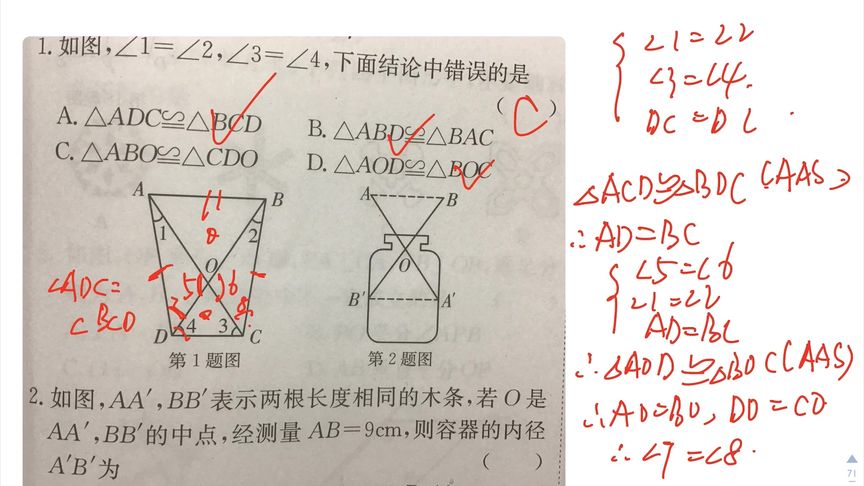 1.如图,∠1=∠2,∠3=∠4,下面结论中错误的是
( C )
A.△ADC≌△BCD
B.△ABD≌△BAC
C.△ABO≌△CDO
D.△AOD≌△BOC
A
B
1
2
O
5
6
7
8
4
3
D
C
∠ADC=
∠BCD
第1题图
A
B
O
B′
A′
第2题图
2.如图,AA′,BB′表示两根长度相同的木条,若O是
AA′,BB′的中点,经测量AB=9cm,则容器的内径
A′B′为
( )
∠1=∠2
∠3=∠4.
DC=DC
△ACD≌△BDC(AAS)
∴AD=BC
∠5=∠6
∠1=∠2
AD=BC
∴△AOD≌△BOC(AAS)
∴AO=BO,DO=CO
∴∠7=∠8.
71